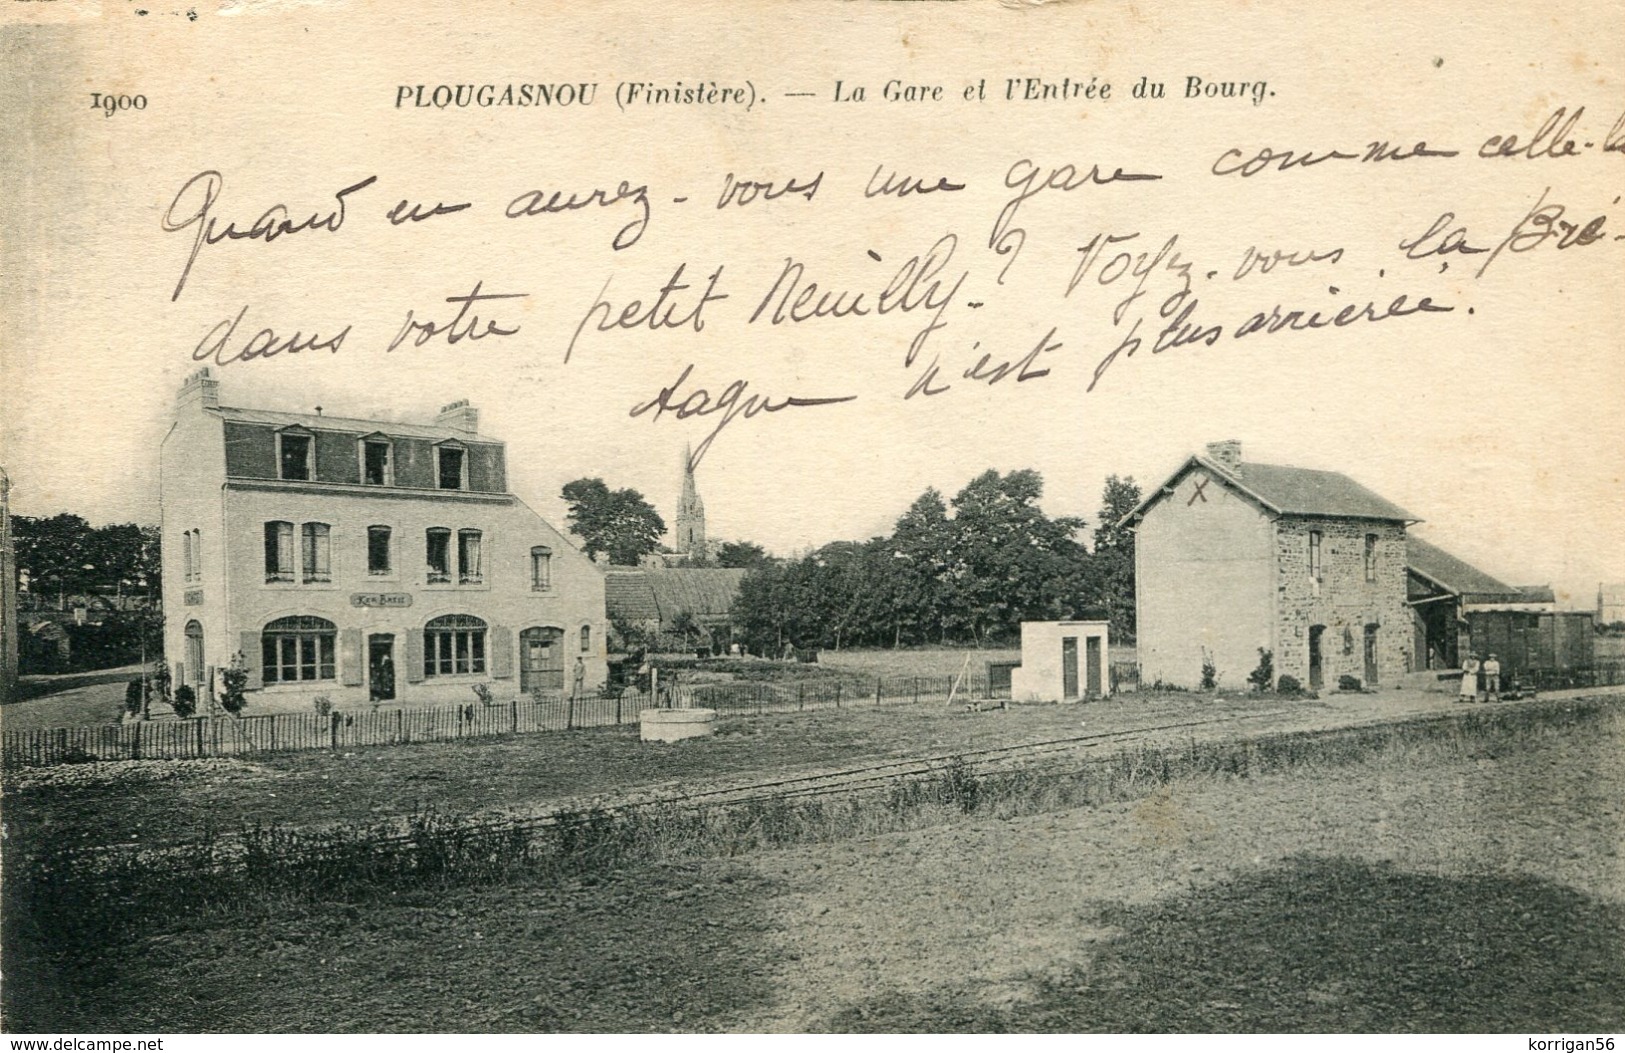 1900
PLOUGASNOU (Finistère). — La Gare et l'Entrée du Bourg.
Quand en aurez-vous une gare comme celle-là
dans votre petit Neuilly-? Voyez-vous la Bré-
tagne n'est plus arriérée.
www.delcampe.net
korrigan56